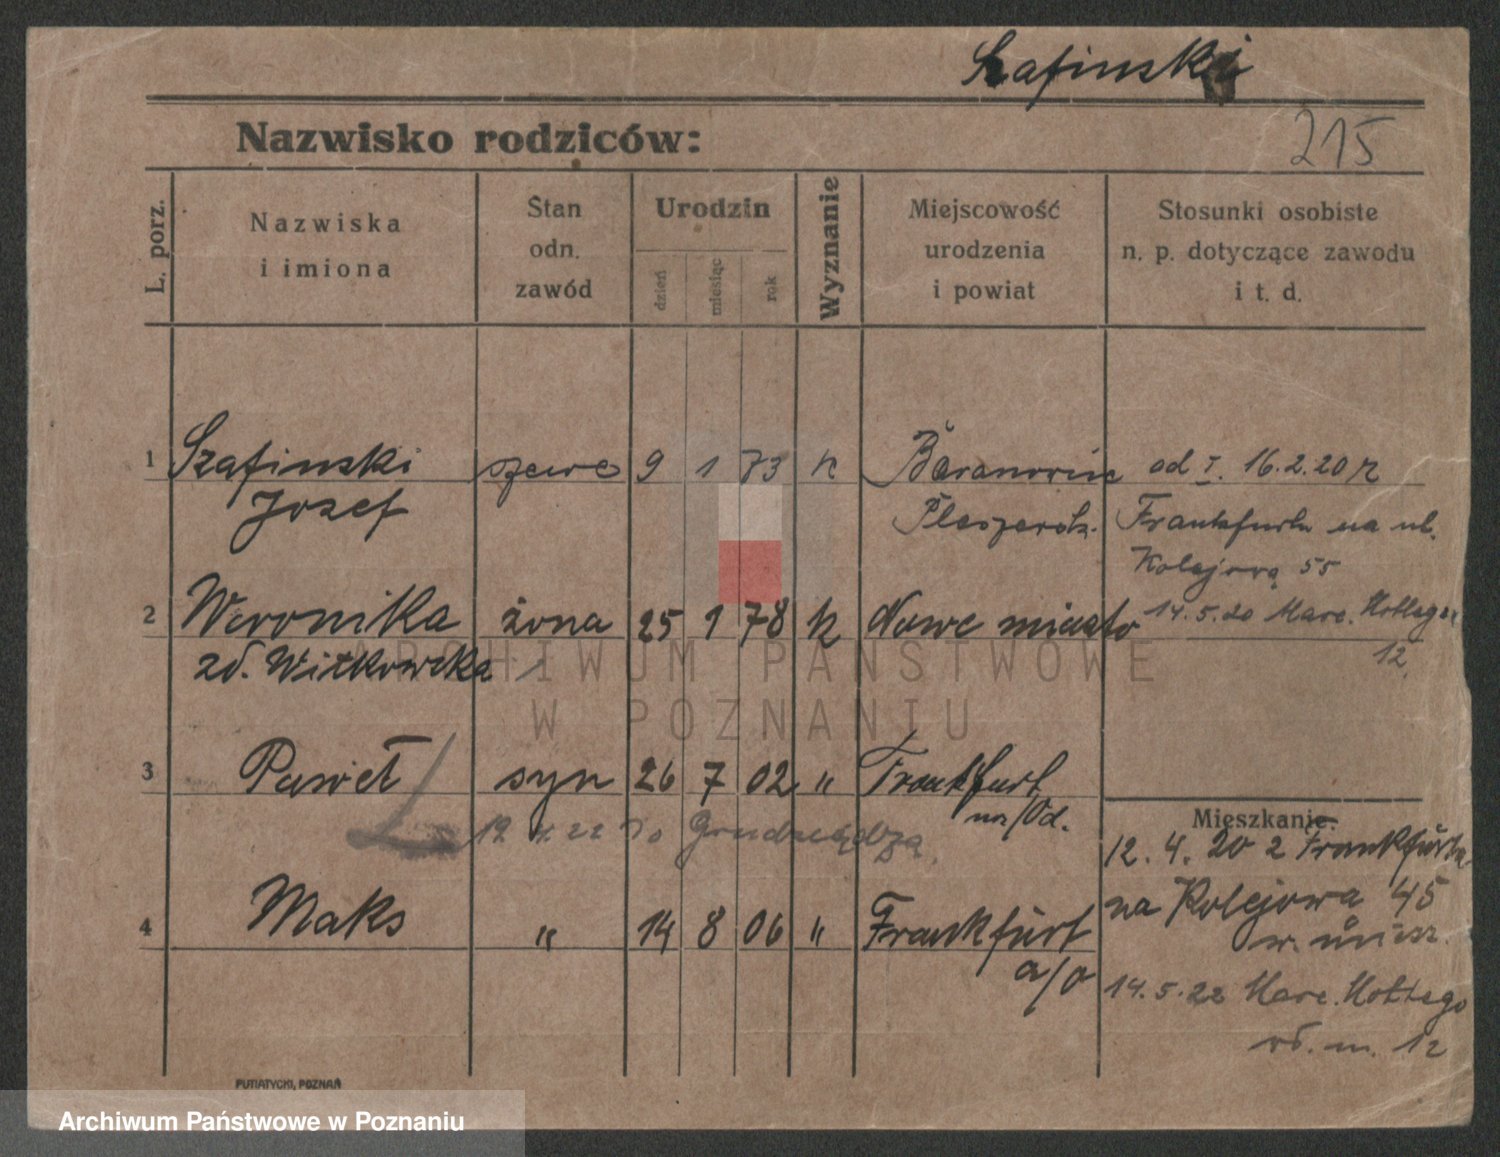 Szafinski
Nazwisko rodziców:
215
L. porz.
Nazwiska
i imiona
Stan
odn.
zawód
Urodzin
dzień
miesiąc
rok
Wyznanie
Miejscowość
urodzenia
i powiat
Stosunki osobiste
n. p. dotyczące zawodu
i t. d.
1 Szafinski szewc 9 1 73 k od I. 16.2.20 r
Jozef Frankfurtu na ul.
Kolejową 55
2 Weronika żona 25 1 78 k Nowe miasto 14.5.20 Marc.
12
zd. Witkowska
ARCHIWUM PAŃSTWOWE
W POZNANIU
3 Paweł syn 26 7 02 " Frankfurt
na/Od.
22 do Grudziądza
Mieszkanie:
12. 4. 20 z Frankfurtu
na Kolejowa 45
4 Maks " 14 8 06 " Frankfurt
a/O
14.5.22 Marc.
m. 12
PUTIATYCKI, POZNAŃ
Archiwum Państwowe w Poznaniu